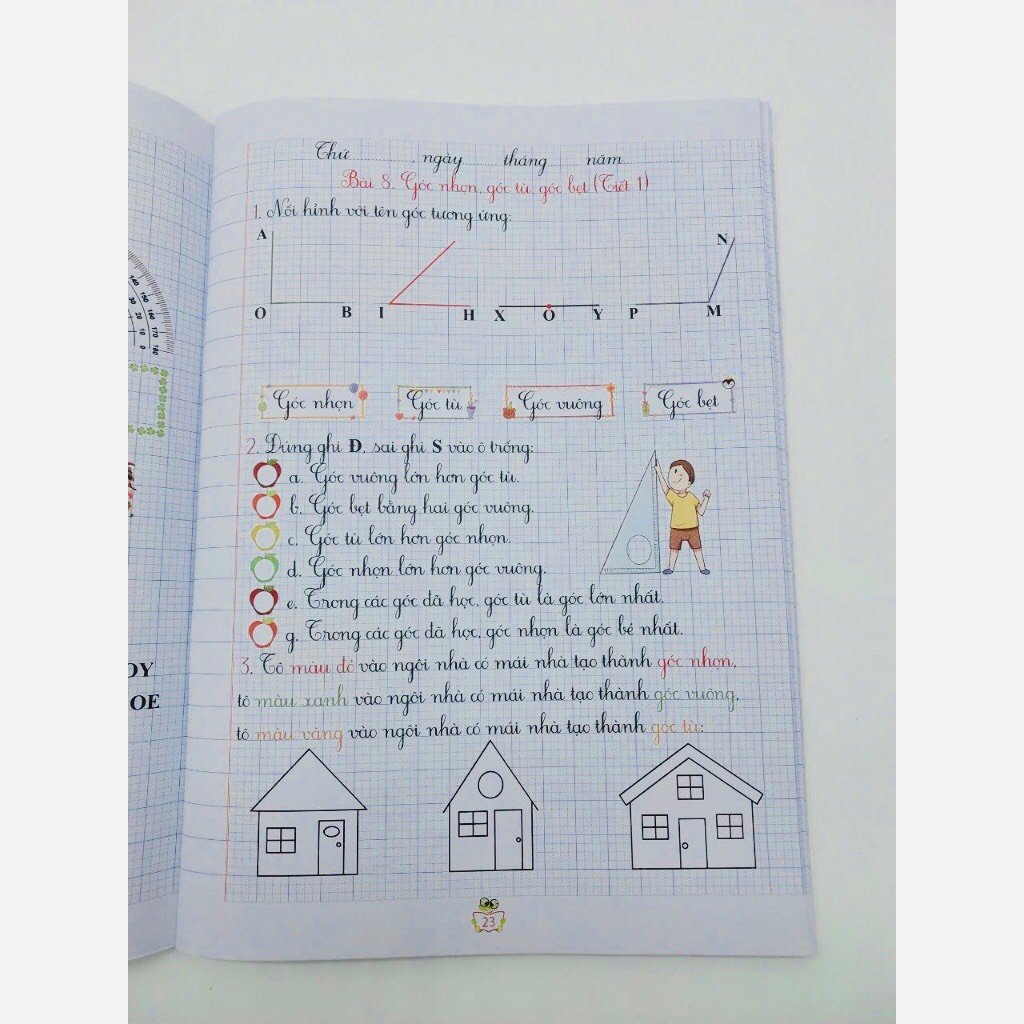 Thứ ngày tháng năm
Bài 8. Góc nhọn, góc tù, góc bẹt (Tiết 1)
1. Nối hình với tên góc tương ứng:
A N
O B I H X O Y P M
Góc nhọn Góc tù Góc vuông Góc bẹt
2. Đúng ghi Đ, sai ghi S vào ô trống:
a. Góc vuông lớn hơn góc tù.
b. Góc bẹt bằng hai góc vuông.
c. Góc tù lớn hơn góc nhọn.
d. Góc nhọn lớn hơn góc vuông.
e. Trong các góc đã học, góc tù là góc lớn nhất.
g. Trong các góc đã học, góc nhọn là góc bé nhất.
3. Tô màu đỏ vào ngôi nhà có mái nhà tạo thành góc nhọn,
tô màu xanh vào ngôi nhà có mái nhà tạo thành góc vuông,
tô màu vàng vào ngôi nhà có mái nhà tạo thành góc tù:
23
140 150 160 170 180
30 20 10 0
OY
OE